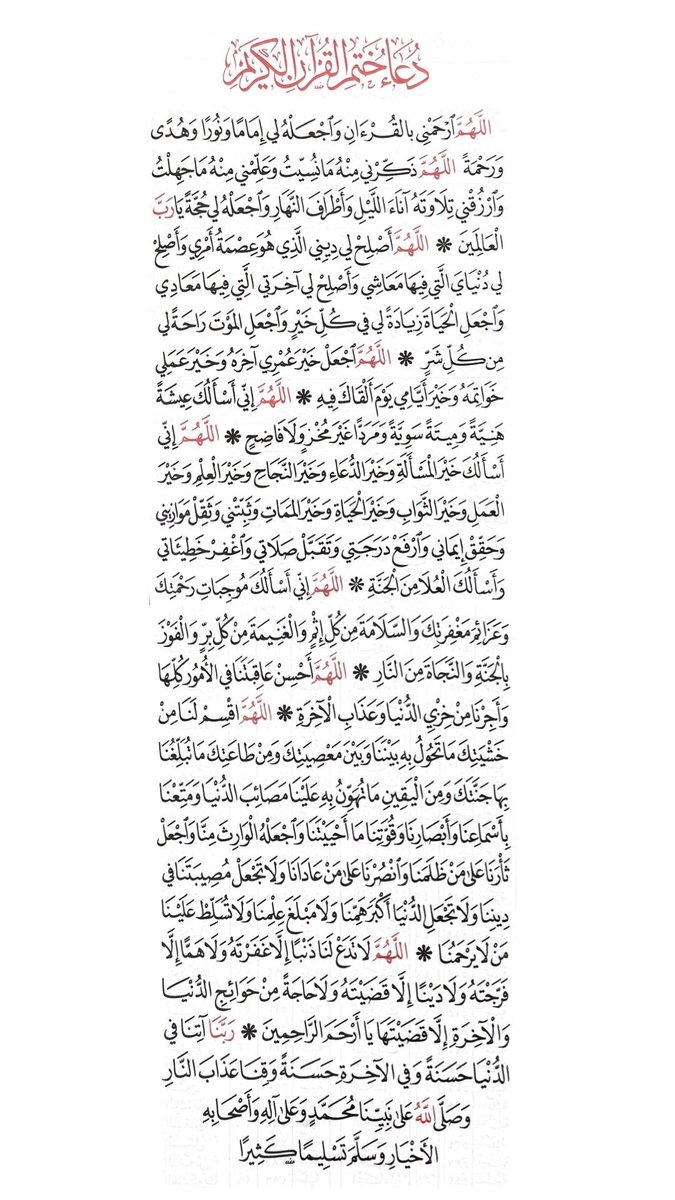 دُعَاءُ خَتْمِ الْقُرْآنِ الْكَرِيمِ
اللَّهُمَّ ٱرْحَمْنِي بالقُرْءَانِ وَٱجْعَلهُ لِي إِمَامًا وَنُورًا وَهُدًى
وَرَحْمَةً اللَّهُمَّ ذَكِّرْنِي مِنْهُ مَانُسِّيتُ وَعَلِّمْنِي مِنْهُ مَاجَهِلْتُ
وَٱرْزُقْنِي تِلَاوَتَهُ آنَاءَ اللَّيْلِ وَأَطْرَافَ النَّهَارِ وَٱجْعَلْهُ لِي حُجَّةً يَارَبَّ
العَالَمِينَ * اللَّهُمَّ أَصْلِحْ لِي دِينِي الَّذِي هُوَعِصْمَةُ أَمْرِي وَأَصْلِحْ
لِي دُنْيَايَ الَّتِي فِيهَا مَعَاشِي وَأَصْلِحْ لِي آخِرَتِي الَّتِي فِيهَا مَعَادِي
وَٱجْعَلِ الْحَيَاةَ زِيَادَةً لِي فِي كُلِّ خَيْرٍ وَٱجْعَلِ المَوْتَ رَاحَةً لِي
مِن كُلِّ شَرٍّ * اللَّهُمَّ ٱجْعَلْ خَيْرَ عُمْرِي آخِرَهُ وَخَيْرَ عَمَلِي
خَوَاتِمَهُ وَخَيْرَ أَيَّامِي يَوْمَ أَلْقَاكَ فِيهِ * اللَّهُمَّ إِنِّي أَسْأَلُكَ عِيشَةً
هَنِيَّةً وَمِيتَةً سَوِيَّةً وَمَرَدًّا غَيْرَ مُخْزٍ وَلَا فَاضِحٍ * اللَّهُمَّ إِنِّي
أَسْأَلُكَ خَيْرَ المَسْأَلَةِ وَخَيْرَ الدُّعَاءِ وَخَيْرَ النَّجَاحِ وَخَيْرَ العِلْمِ وَخَيْرَ
العَمَلِ وَخَيْرَ الثَّوَابِ وَخَيْرَ الْحَيَاةِ وَخَيْرَ المَمَاتِ وَثَبِّتْنِي وَثَقِّلْ مَوَازِينِي
وَحَقِّقْ إِيمَانِي وَٱرْفَعْ دَرَجَتِي وَتَقَبَّلْ صَلَاتِي وَٱغْفِرْ خَطِيئَاتِي
وَأَسْأَلُكَ الْعُلَا مِنَ الْجَنَّةِ * اللَّهُمَّ إِنِّي أَسْأَلُكَ مُوجِبَاتِ رَحْمَتِكَ
وَعَزَائِمَ مَغْفِرَتِكَ وَالسَّلَامَةَ مِن كُلِّ إِثْمٍ وَالْغَنِيمَةَ مِنْ كُلِّ بِرٍّ وَالْفَوْزَ
بِالْجَنَّةِ وَالنَّجَاةَ مِنَ النَّارِ * اللَّهُمَّ أَحْسِنْ عَاقِبَتَنَا فِي الْأُمُورِ كُلِّهَا
وَأَجِرْنَا مِنْ خِزْيِ الدُّنْيَا وَعَذَابِ الْآخِرَةِ * اللَّهُمَّ اقْسِمْ لَنَا مِنْ
خَشْيَتِكَ مَا تَحُولُ بِهِ بَيْنَنَا وَبَيْنَ مَعْصِيَتِكَ وَمِنْ طَاعَتِكَ مَا تُبَلِّغُنَا
بِهَا جَنَّتَكَ وَمِنَ الْيَقِينِ مَا تُهَوِّنُ بِهِ عَلَيْنَا مَصَائِبَ الدُّنْيَا وَمَتِّعْنَا
بِأَسْمَاعِنَا وَأَبْصَارِنَا وَقُوَّتِنَا مَا أَحْيَيْتَنَا وَٱجْعَلْهُ الْوَارِثَ مِنَّا وَٱجْعَلْ
ثَأْرَنَا عَلَى مَنْ ظَلَمَنَا وَٱنْصُرْنَا عَلَى مَنْ عَادَانَا وَلَا تَجْعَلْ مُصِيبَتَنَا فِي
دِينِنَا وَلَا تَجْعَلِ الدُّنْيَا أَكْبَرَ هَمِّنَا وَلَا مَبْلَغَ عِلْمِنَا وَلَا تُسَلِّطْ عَلَيْنَا
مَنْ لَا يَرْحَمُنَا * اللَّهُمَّ لَا تَدَعْ لَنَا ذَنْبًا إِلَّا غَفَرْتَهُ وَلَا هَمًّا إِلَّا
فَرَّجْتَهُ وَلَا دَيْنًا إِلَّا قَضَيْتَهُ وَلَا حَاجَةً مِنْ حَوَائِجِ الدُّنْيَا
وَالْآخِرَةِ إِلَّا قَضَيْتَهَا يَا أَرْحَمَ الرَّاحِمِينَ * رَبَّنَا آتِنَا فِي
الدُّنْيَا حَسَنَةً وَفِي الآخِرَةِ حَسَنَةً وَقِنَا عَذَابَ النَّارِ
وَصَلَّى اللَّهُ عَلَى نَبِيِّنَا مُحَمَّدٍ وَعَلَى آلِهِ وَأَصْحَابِهِ
الأَخْيَارِ وَسَلَّمَ تَسْلِيمًا كَثِيرًا